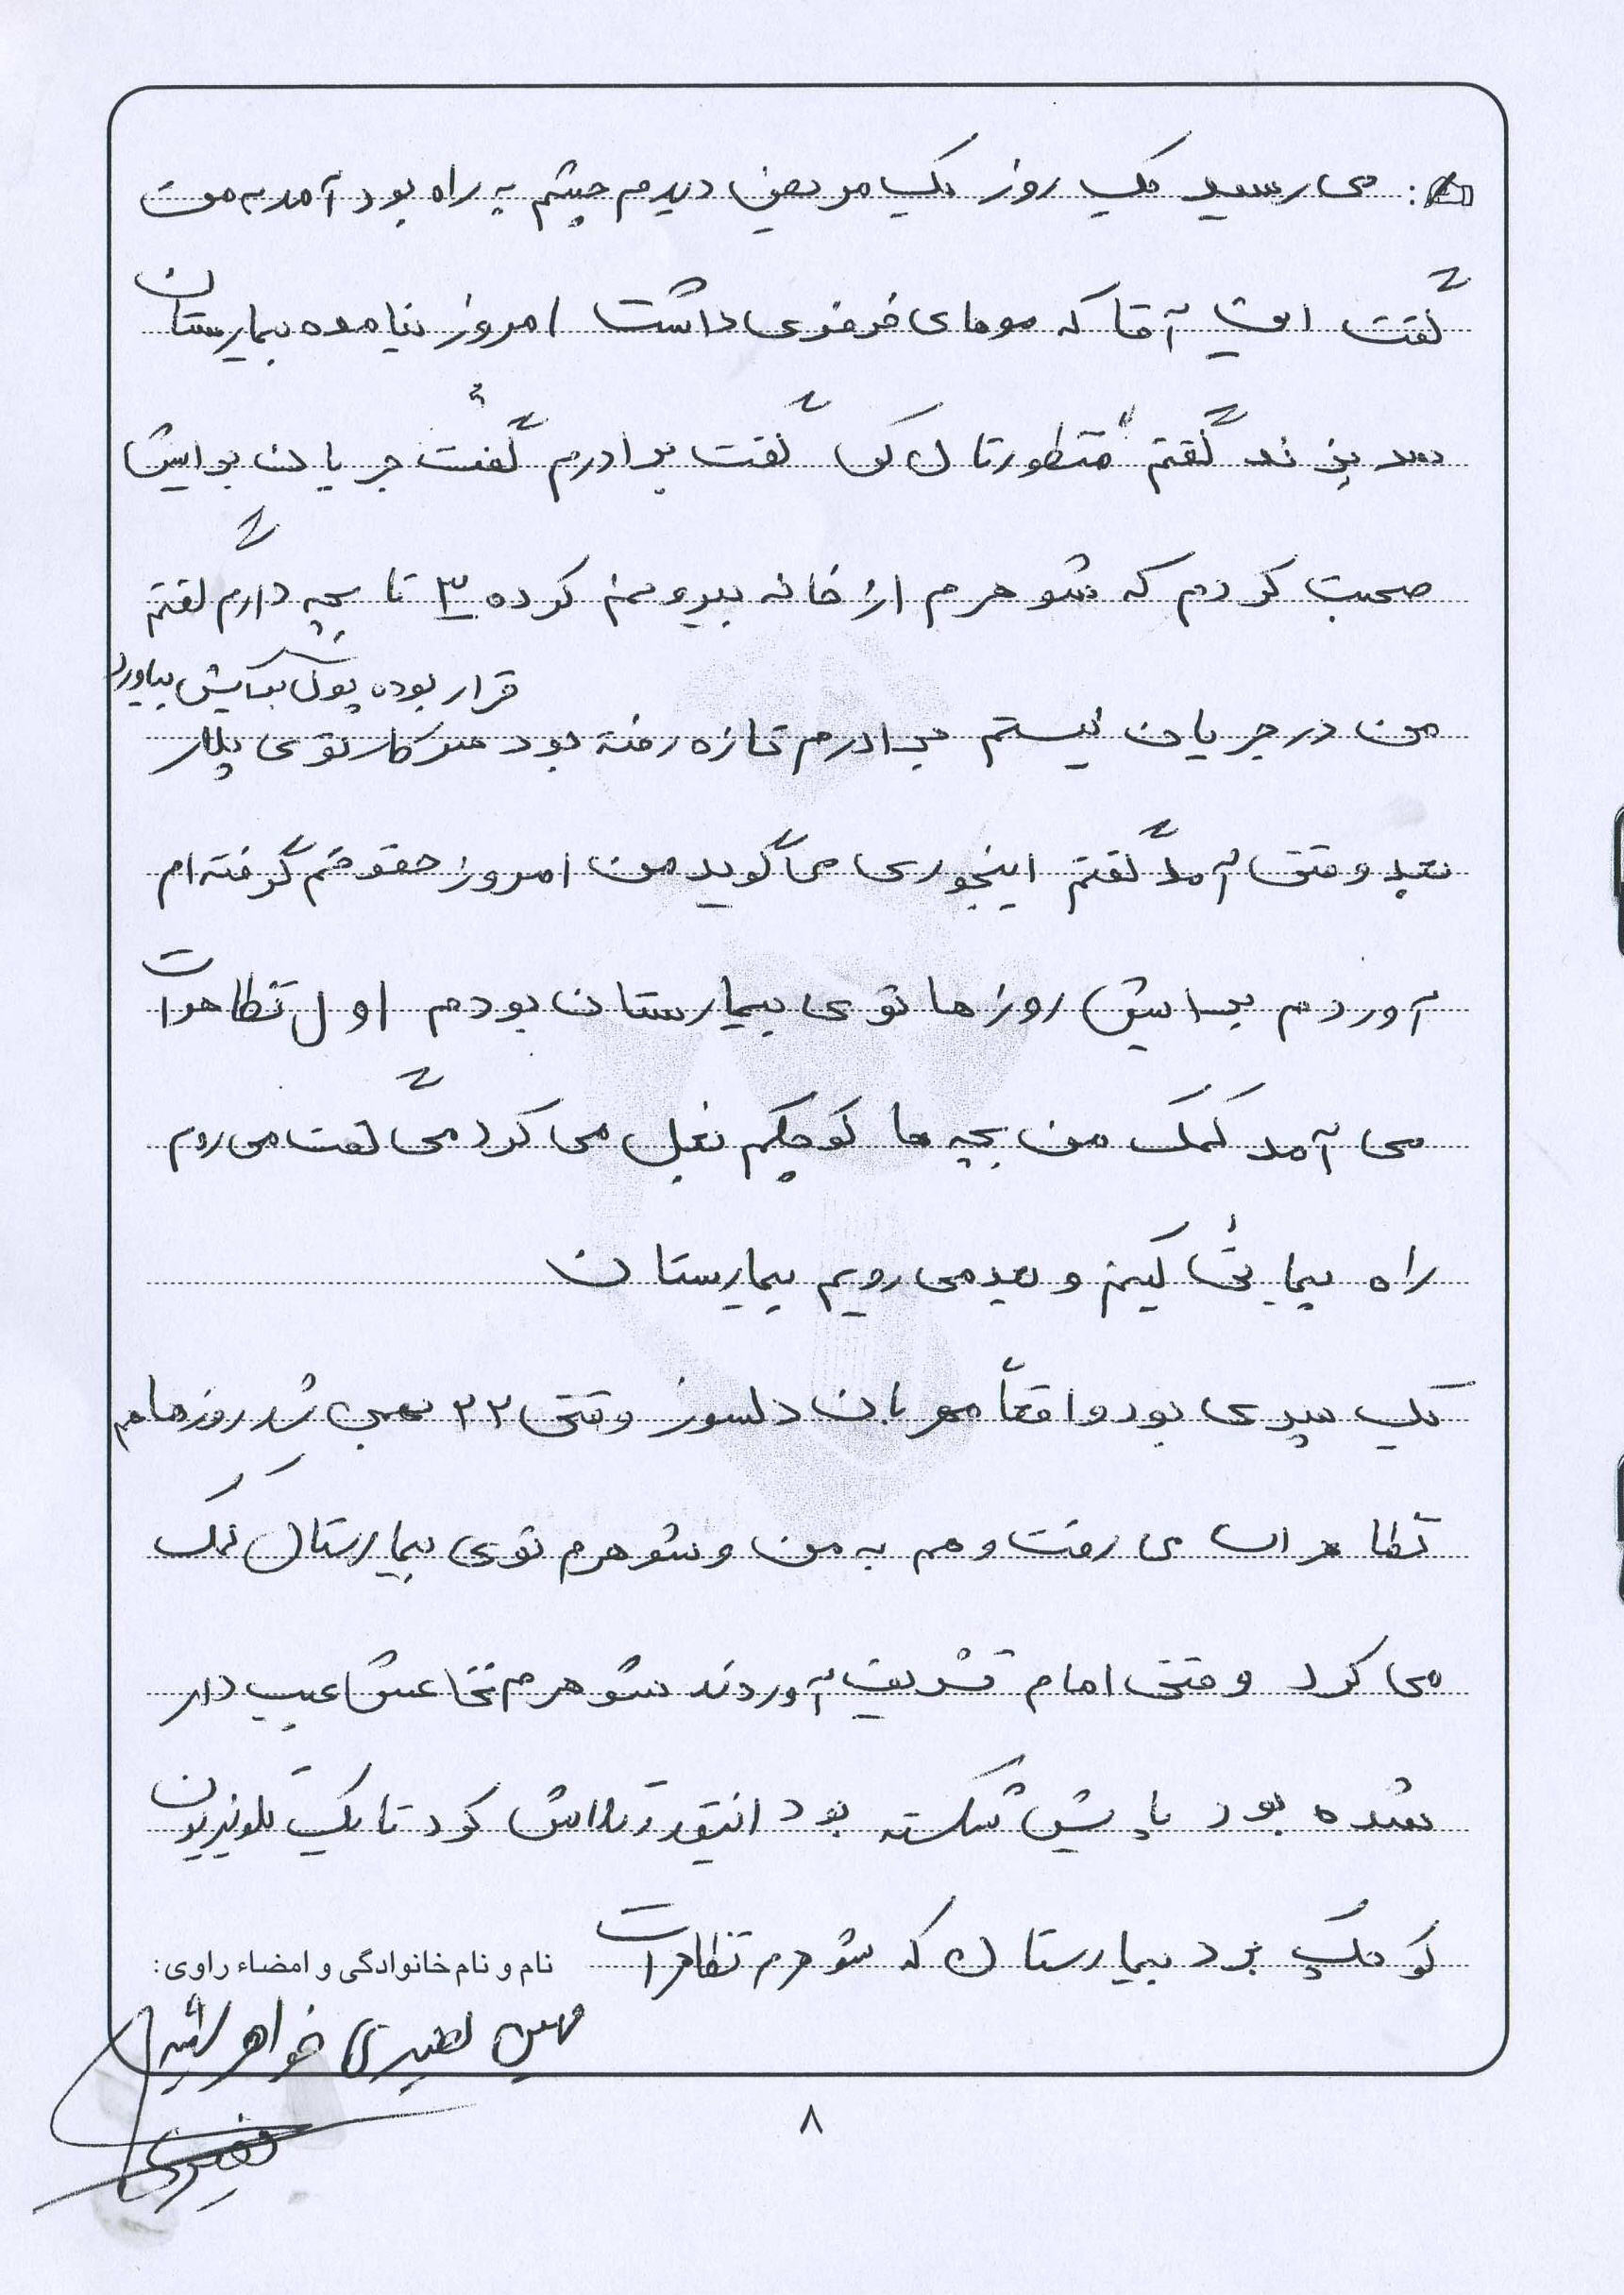 می رسید یک روز یک مریض دیدم چشم به راه بود آمد به من
گفت این آقا که موهای فرفری داشت امروز نیامده بیمارستان
سر بزند گفتم منظورتان کی گفت برادرم گفت جریان برایش
صحبت کردم که شوهرم از خانه بیرونم کرده ۳ تا بچه دارم گفتم
قرار بوده پول برایش بیاورد
من در جریان نیستم برادرم تازه رفته بود سر کار توی پلار
بعد وقتی آمد گفتم اینجوری می گوید من امروز حقوقم گرفته ام
آوردم برایش روزها توی بیمارستان بودم اول تظاهرات
می آمد کمک من بچه ها کوچکم بغل می کرد می گفت می رویم
راه پیمائی کنیم و بعد می رویم بیمارستان
یک پسری بود واقعاً مهربان دلسوز وقتی ۲۲ بهمن شد روزها هم
تظاهرات می رفت و هم به من و شوهرم توی بیمارستان کمک
می کرد وقتی امام تشریف آوردند شوهرم نخاعش عیب دار
شده بود پایش شکسته بود انیقدر تلاش کرد تا یک تلویزیون
کوچک برد بیمارستان که شوهرم تظاهرات
نام و نام خانوادگی و امضاء راوی:
مهین نصیری خواهر شهید
نصیری
۸